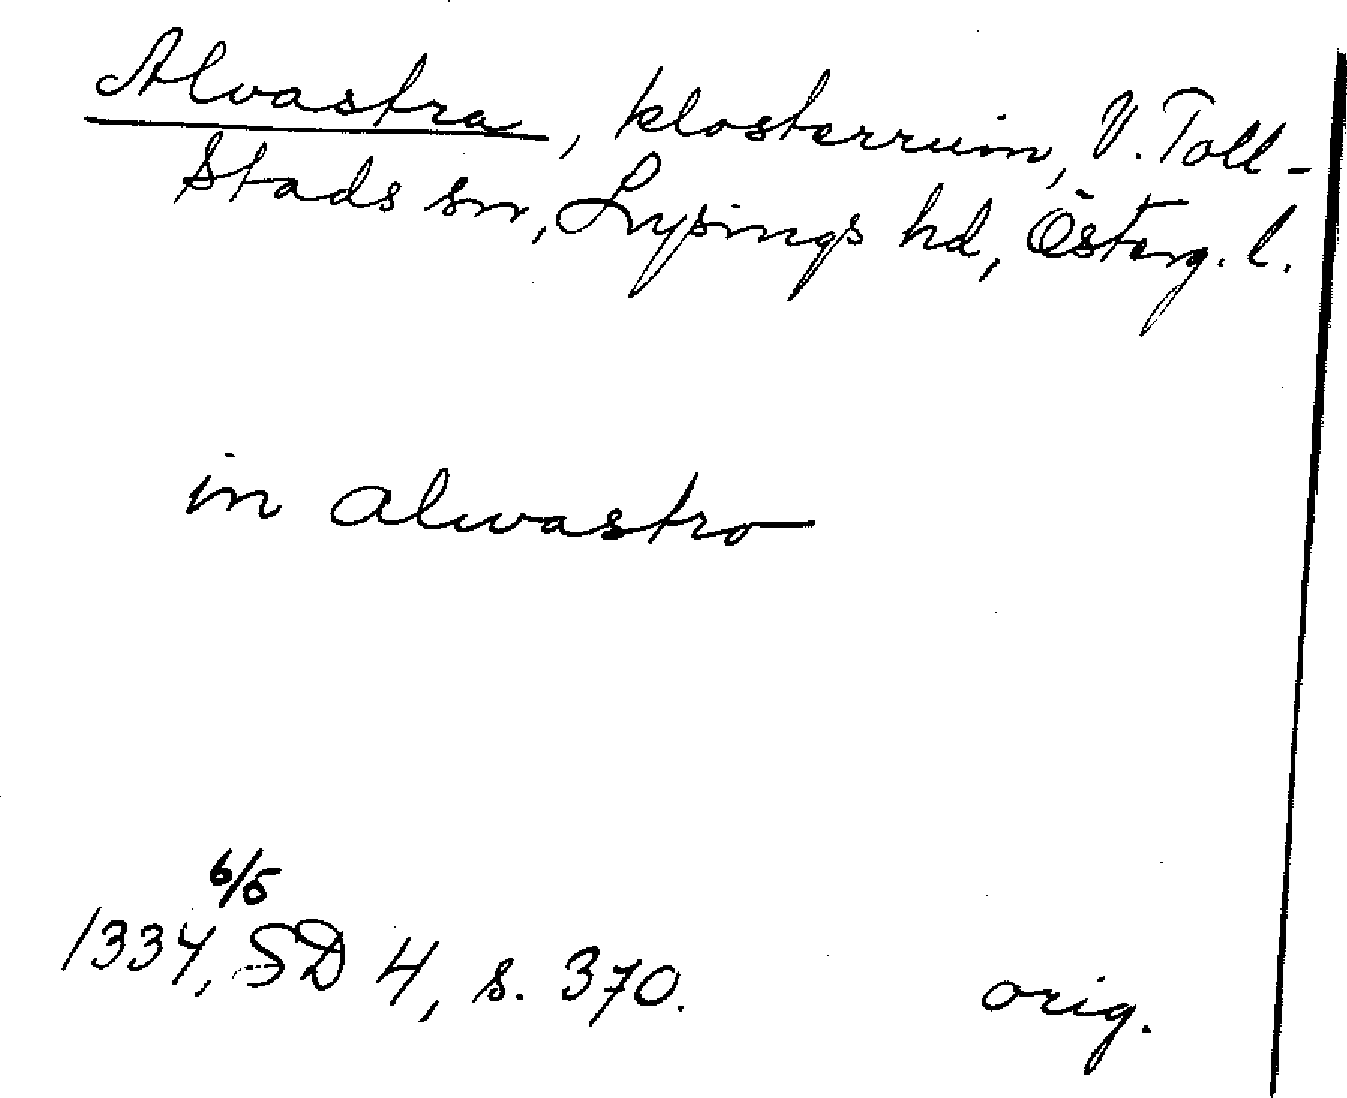 Alvastra, klosterruin, V. Toll-
stads sn, Lysings hd, Österg. l.
in alwastro
6/5
1334, SD 4, s. 370.
orig.